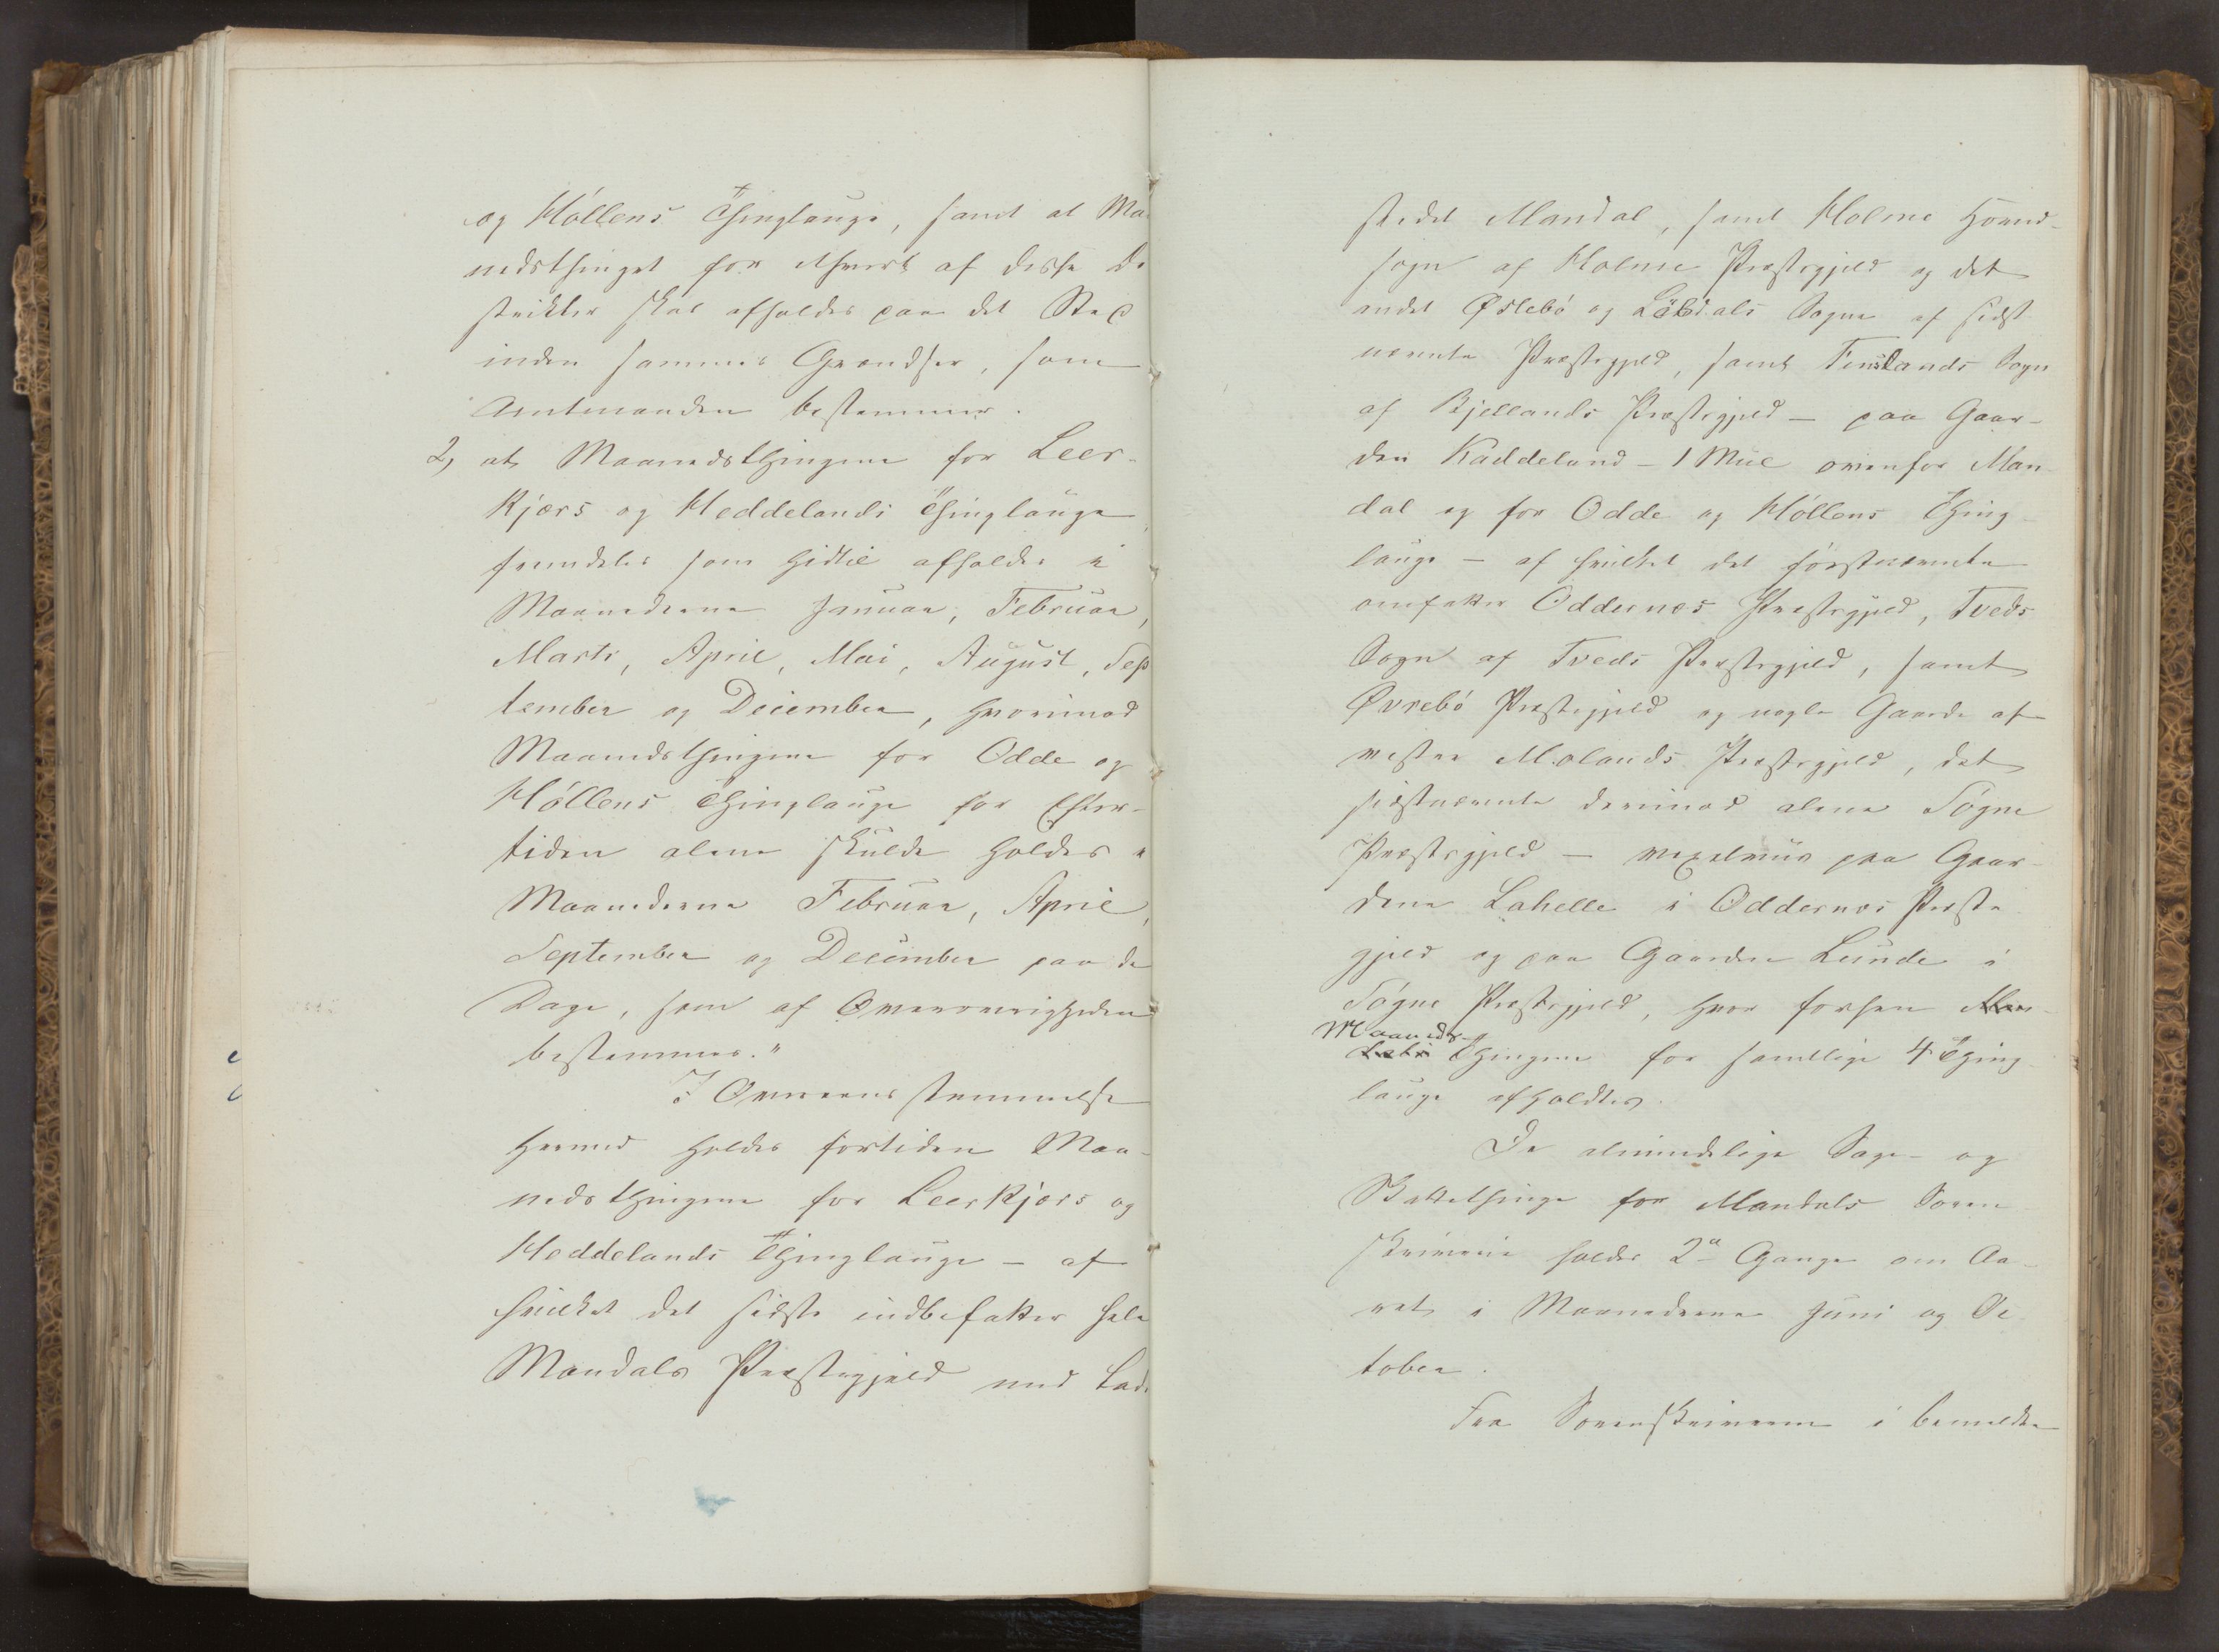 og Höllens Thinglauge, samt at Maa
nedsthinget for ethvert af disse Di
strikter skal afholdes paa det Sted
inden sammes Grændser, som
Amtmanden bestemmer.
2, at Maanedsthingene for Leer-
kjærs og Heddelands Thinglauge
fremdeles som hidtil afholdes i
Maanederne Januar, Februar,
Marts, April, Mai, August, Sep
tember og December, hvorimod
Maanedsthingene for Odde og
Höllens Thinglauge for Efter-
tiden alene skulde holdes i
Maanederne Februar, April,
September og December paa de
Dage, som af Overøvrigheden
bestemmes."
I Overeensstemmelse
hermed holdes fortiden Maa-
nedsthingene for Leerkjærs og
Heddelands Thinglauge – af
hvilket det sidste indbefatter hele
Mandals Præstegjeld med Lade
stedet Mandal, samt Holme Hoved-
sogn af Holme Præstegjeld og det
andet Øslebö og Löbdals Sogne af sidst
nævnte Præstegjeld, samt Finslands Sogn
af Bjellands Præstegjeld – paa Gaar-
den Kaddeland – 1 Miil ovenfor Man
dal og for Odde og Höllens Thing-
lauge – af hvilket det förstnævnte
omfatter Oddernæs Præstegjeld, Tveds
Sogn af Tveds Præstegjeld, samt
Øvrebö Præstegjeld og nogle Gaarde af
vestre Molands Præstegjeld, det
sidstnævnte derimod alene Sögne
Præstegjeld – vexelviis paa Gaar-
dene Lahelle i Oddernæs Præste
gjeld og paa Gaarden Lunde i
Sögne Præstegjeld, hvor forhen
Maaneds
Thingene for samtlige 4 Thing
lauge afholdtes.
De almindelige Sage- og
Skattethinge for Mandals Soren
skriverie holdes 2de Gange om Aa-
ret i Maanederne Juni og Oc
tober.
Fra Sorenskriveren i bemeldte